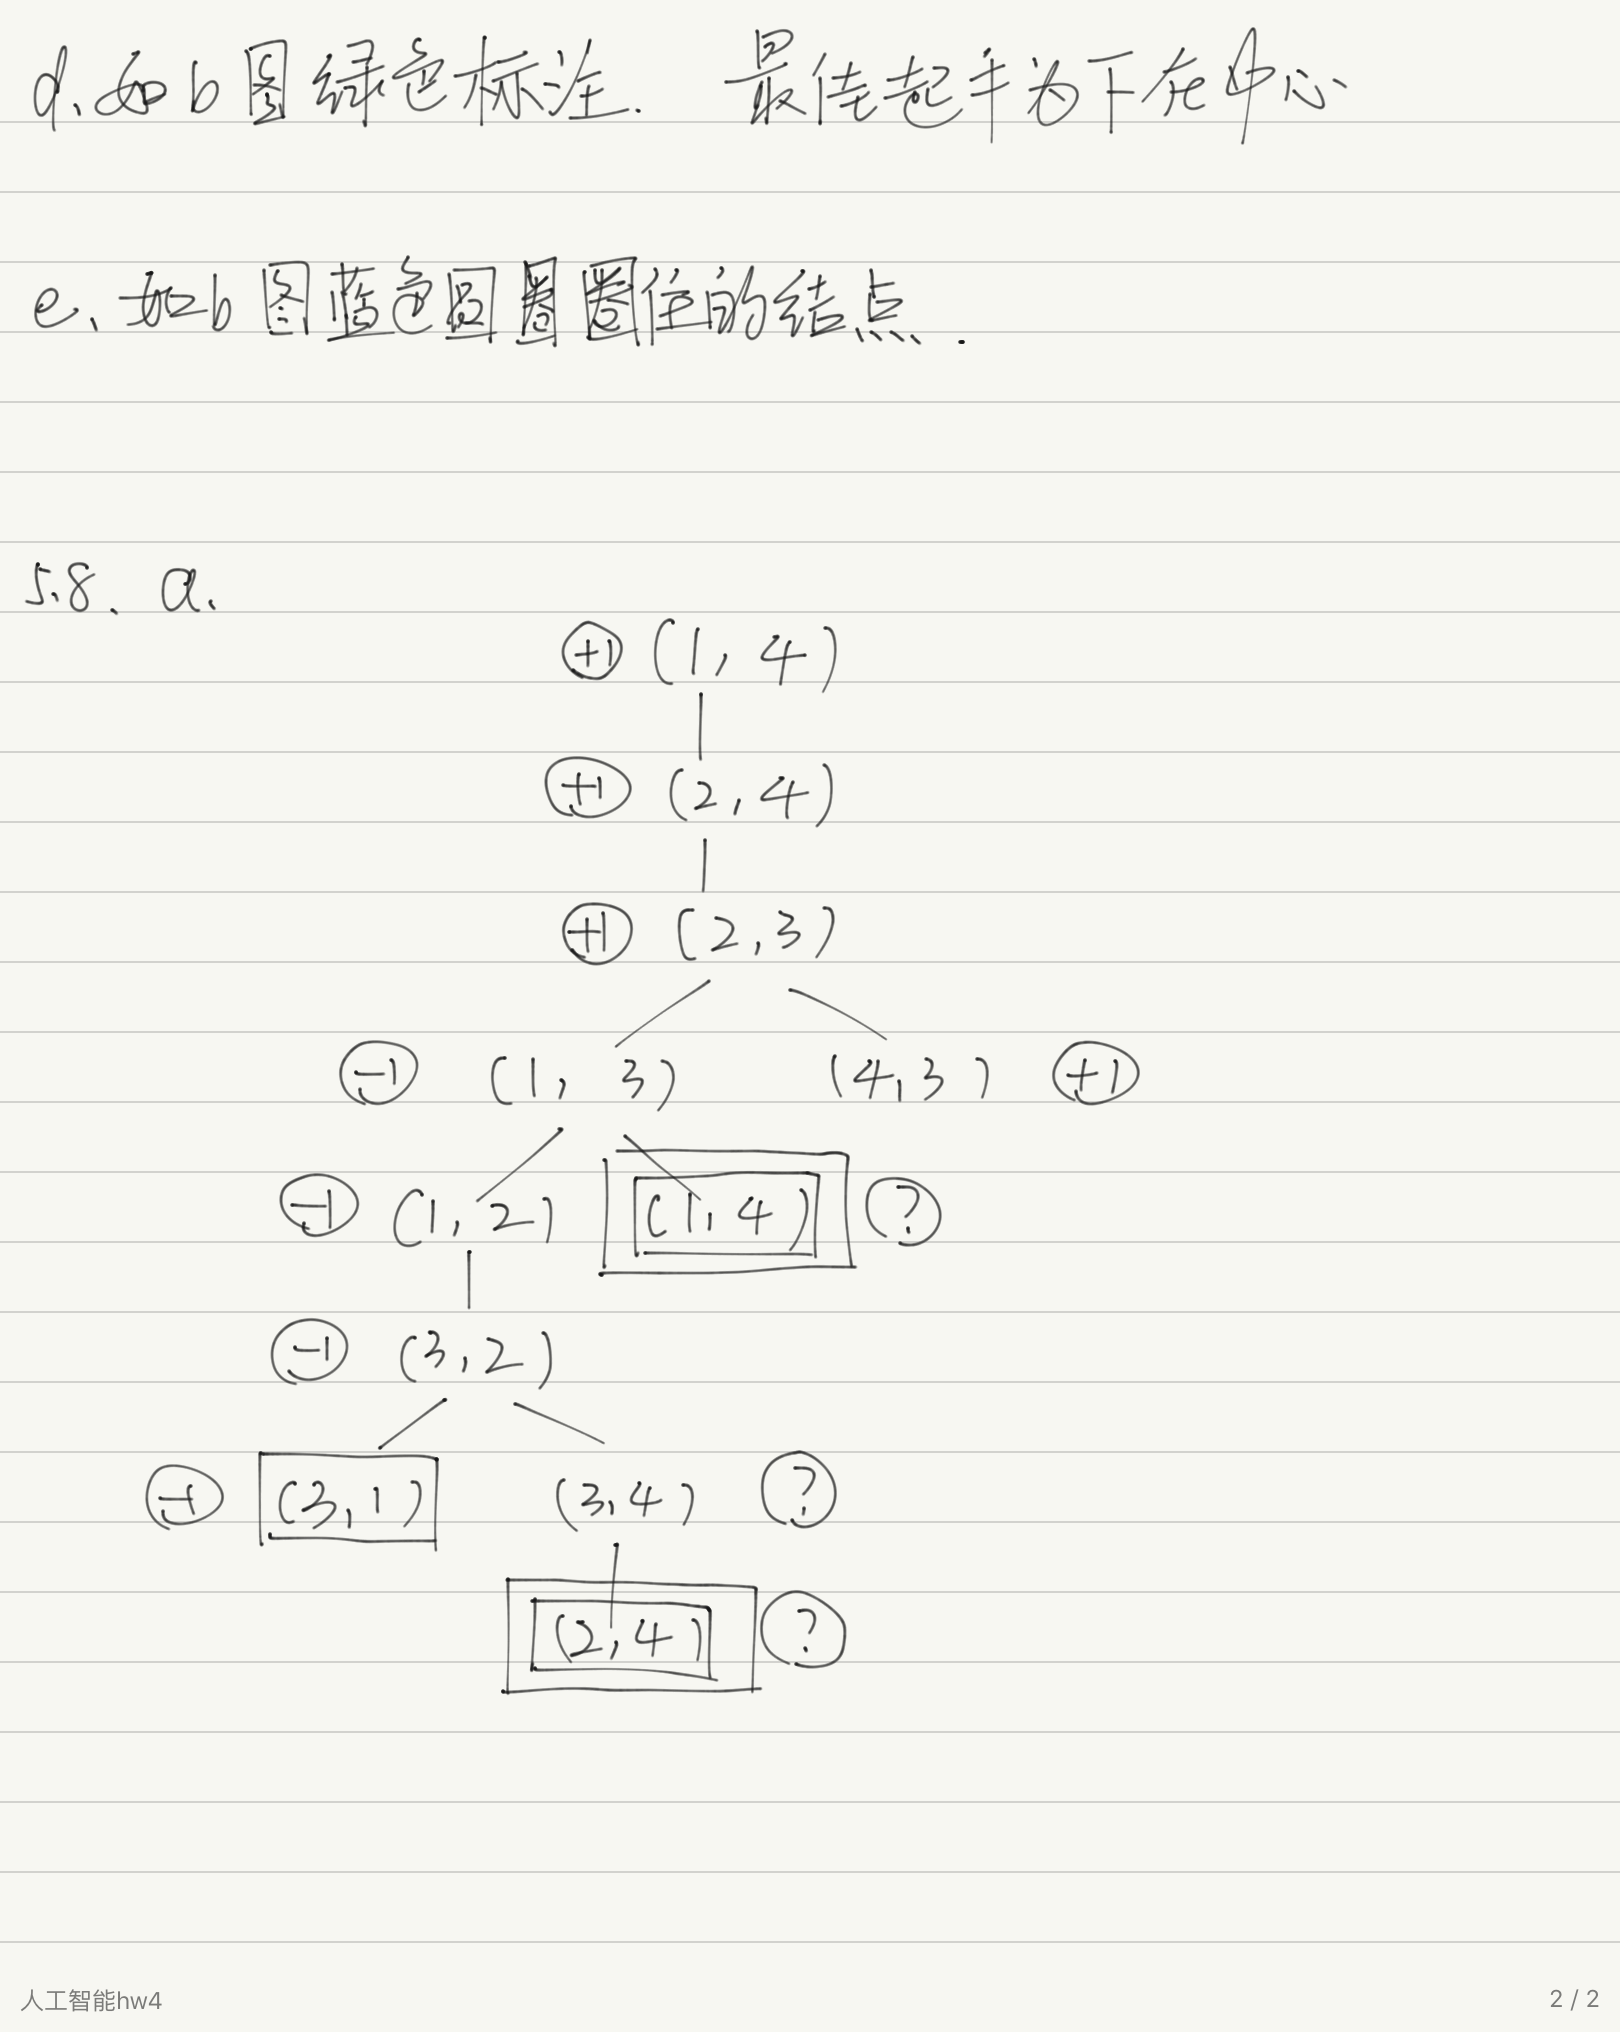 d、如b图绿色标注. 最佳起手为下在中心
e、如b图蓝色圆圈圈住的结点.
5.8、a.
+1 (1, 4)
+1 (2, 4)
+1 (2,3)
-1 (1, 3) (4,3) +1
-1 (1, 2) (1, 4) ?
-1 (3,2)
-1 (3,1) (3,4) ?
(2,4) ?
人工智能hw4 2 / 2